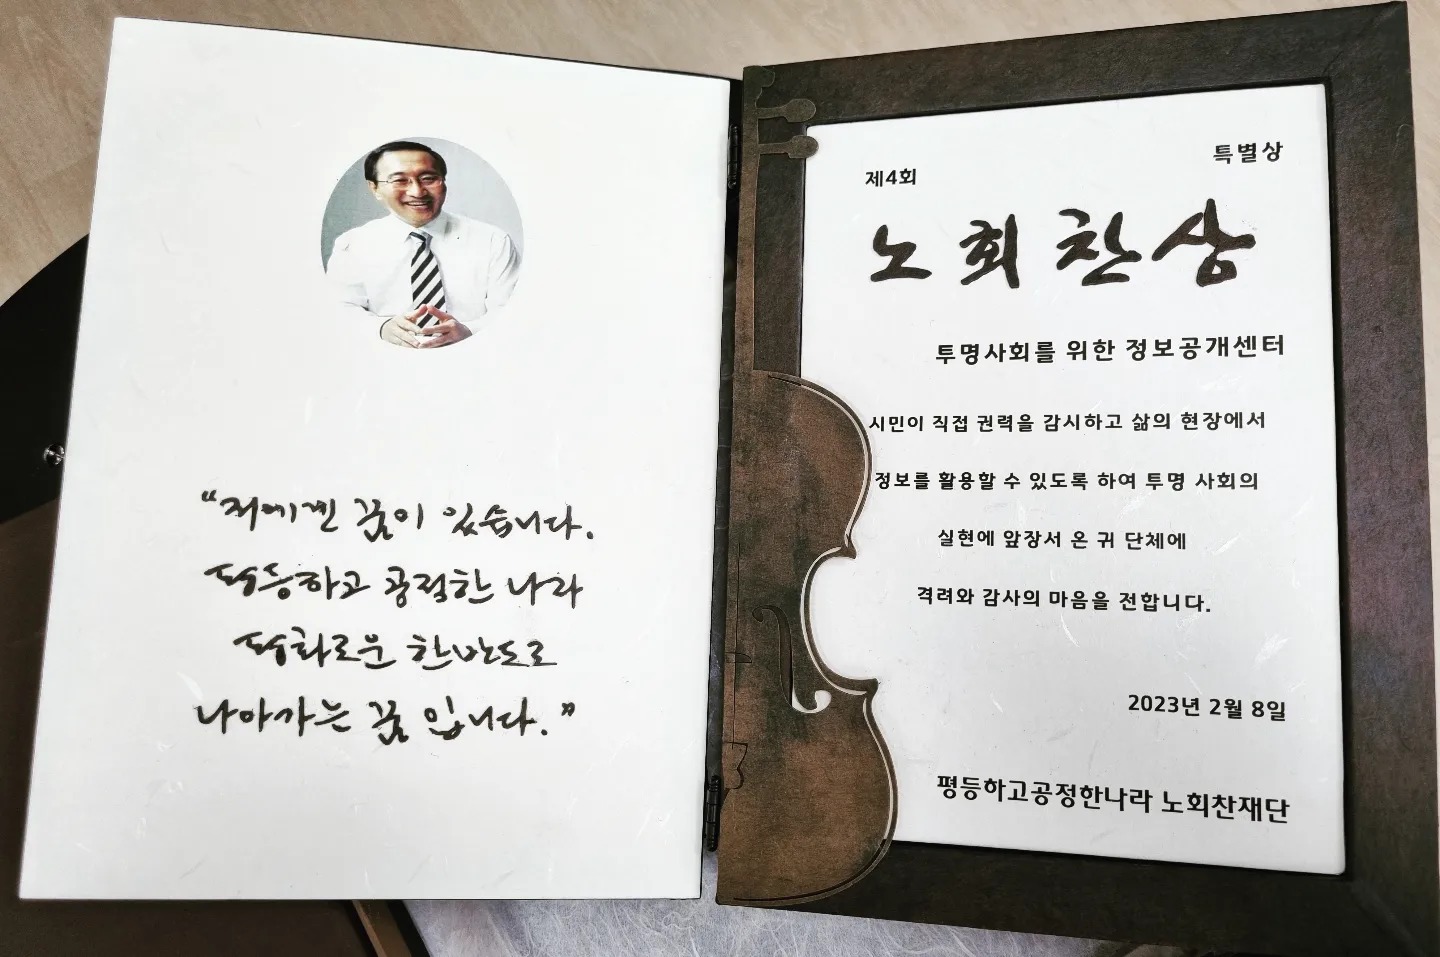 “저에겐 꿈이 있습니다.
평등하고 공정한 나라
평화로운 한반도로
나아가는 꿈 입니다.”
특별상
제4회
노회찬상
투명사회를 위한 정보공개센터
시민이 직접 권력을 감시하고 삶의 현장에서
정보를 활용할 수 있도록 하여 투명 사회의
실현에 앞장서 온 귀 단체에
격려와 감사의 마음을 전합니다.
2023년 2월 8일
평등하고공정한나라 노회찬재단